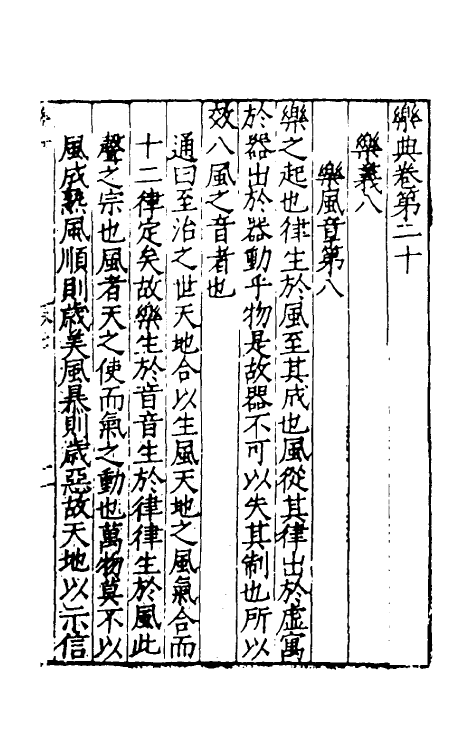 樂典卷第二十
樂義八
樂風章第八
樂之起也律生於風至其成也風從其律出於虛寓
於器出於器動乎物是故器不可以失其制也所以
效八風之音者也
通曰至治之世天地合以生風天地之風氣合而
十二律定矣故樂生於音音生於律律生於風此
聲之宗也風者天之使而氣之動也萬物莫不以
風成熟風順則歲美風暴則歲惡故天地以示信